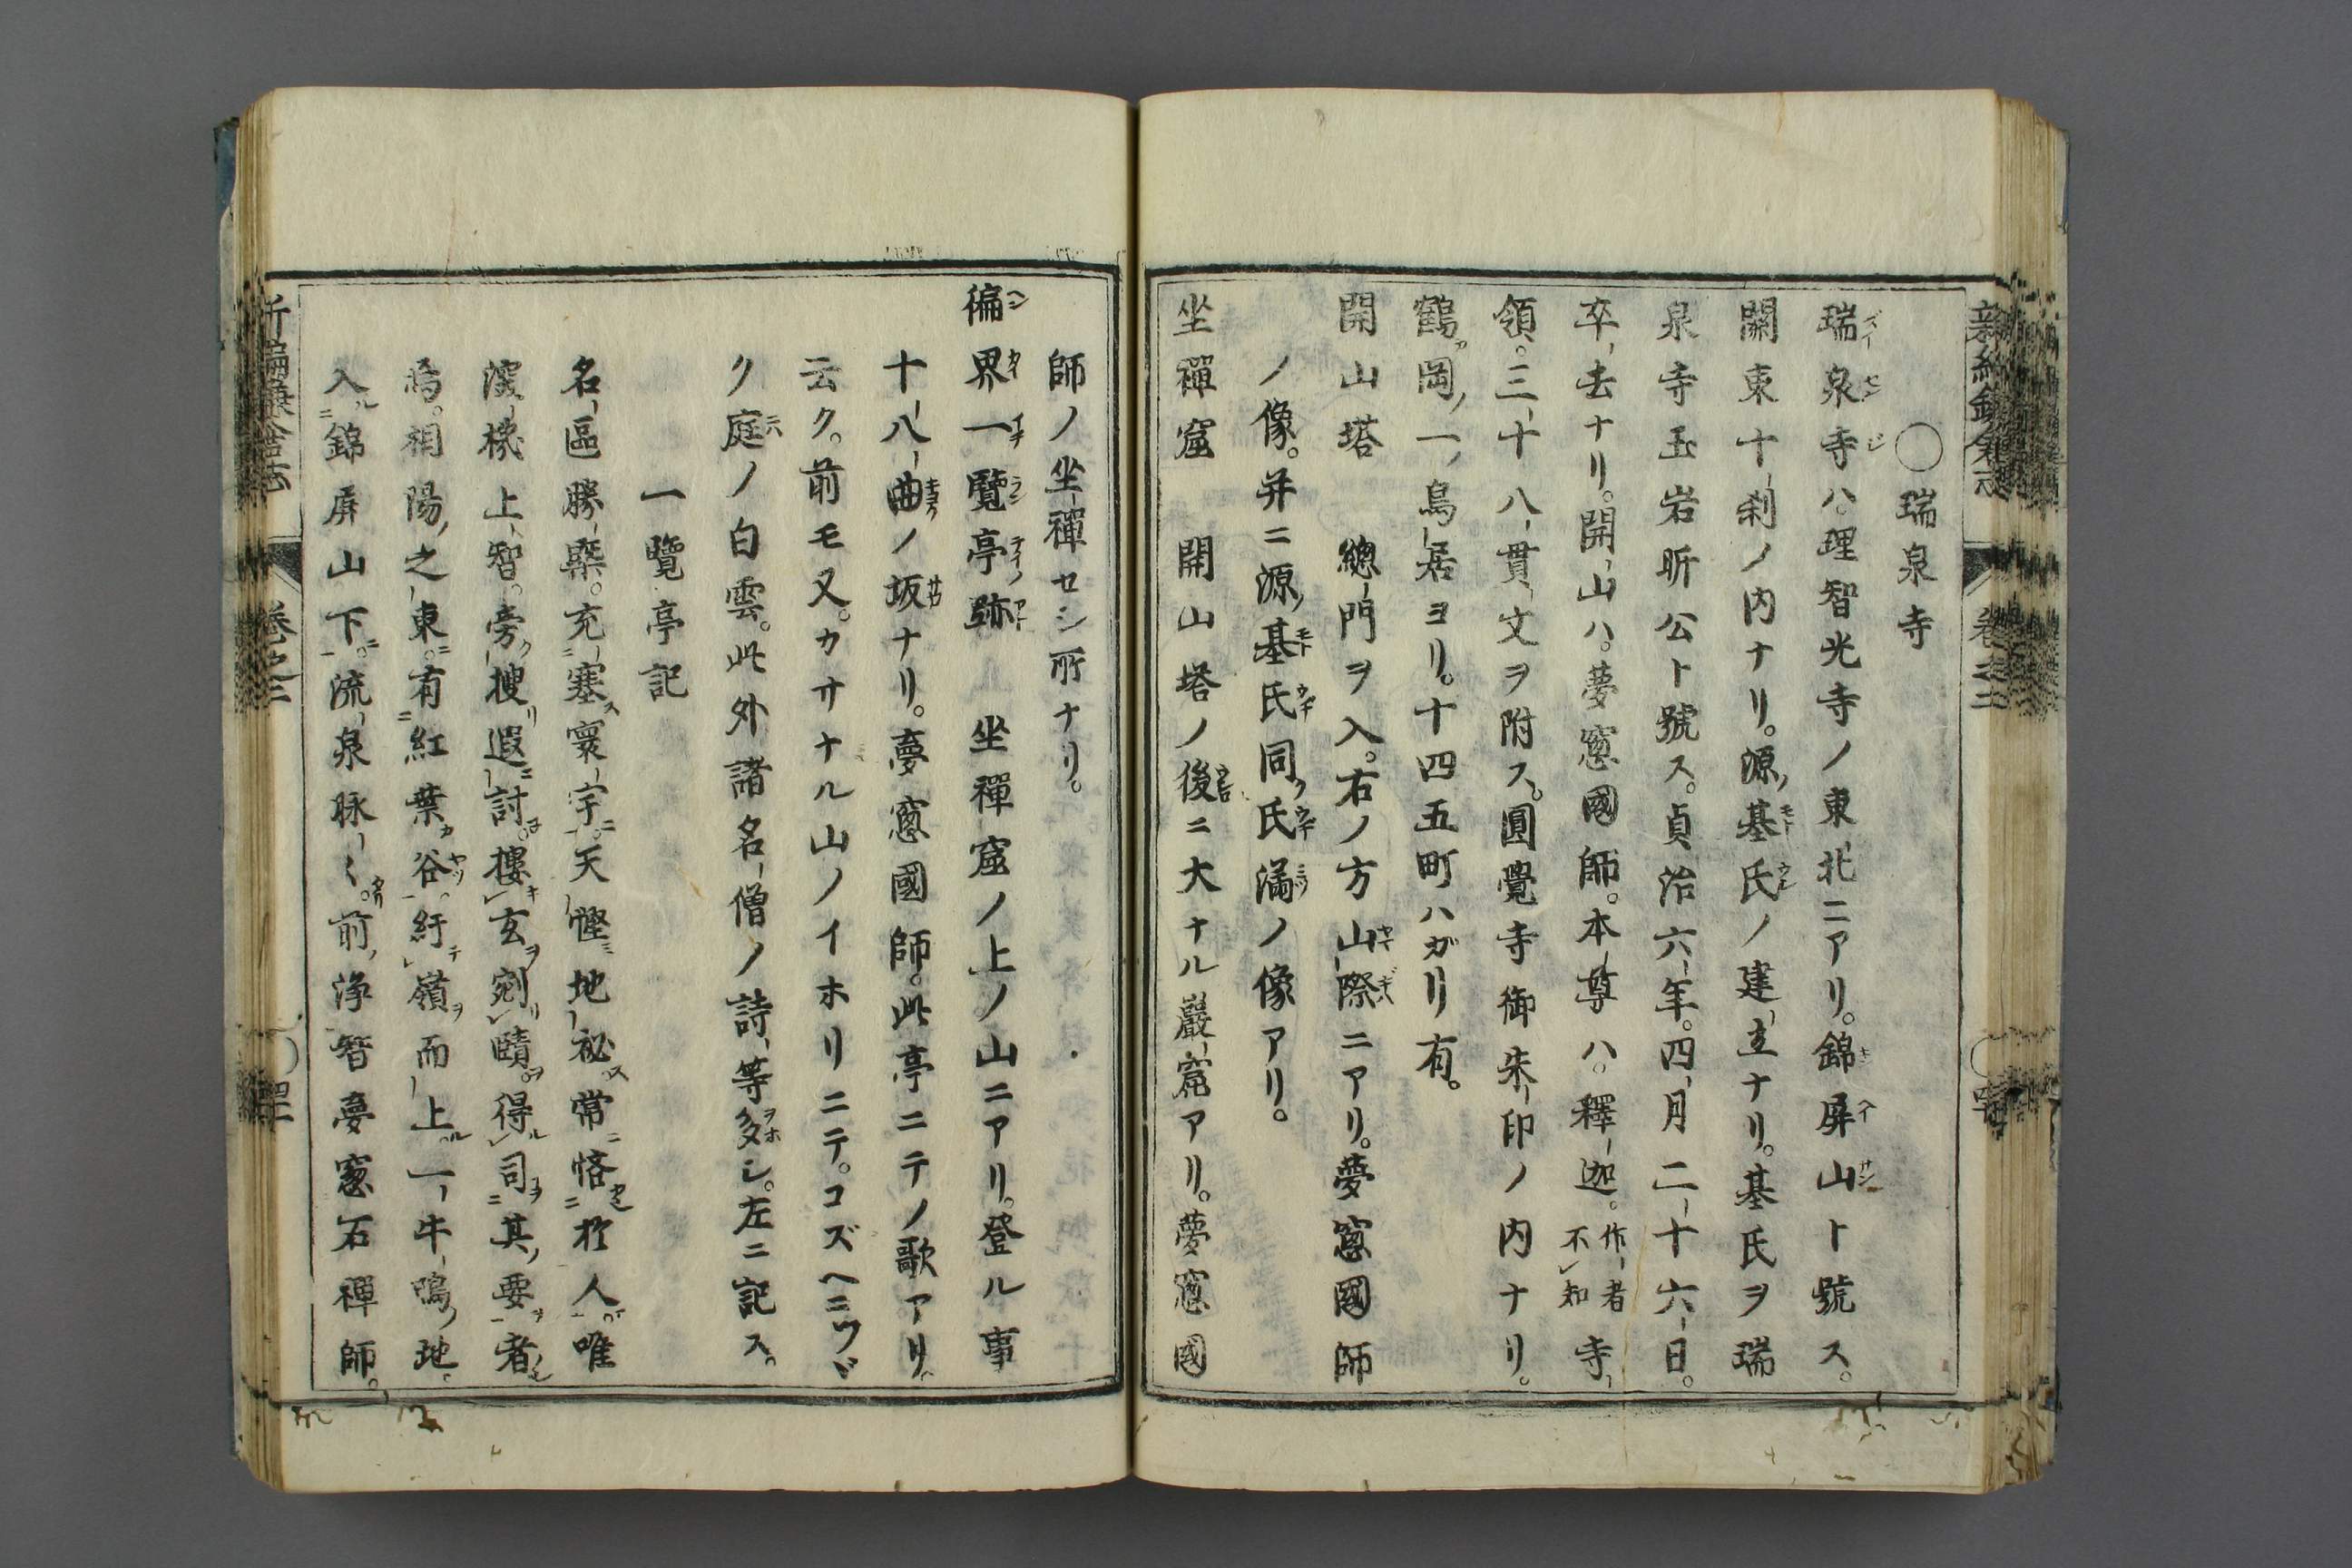 ○瑞泉寺
瑞泉寺ハ。理智光寺ノ東北ニアリ。錦屏山ト號ス。
關東十刹ノ内ナリ。源基氏ノ建立ナリ。基氏ヲ瑞
泉寺玉岩昕公ト號ス。貞治六年。四月二十六日。
卒去ナリ。開山ハ。夢窓國師。本尊ハ。釋迦。作者不知寺
領。三十八貫文ヲ附ス。圓覺寺御朱印ノ内ナリ。
鶴岡ノ一ノ鳥居ヨリ。十四五町ハガリ有。
開山塔　總門ヲ入。右ノ方山際ニアリ。夢窓國師
ノ像。并ニ源基氏同氏滿ノ像アリ。
坐禪窟　開山塔ノ後ニ大ナル巖窟アリ。夢窓國
師ノ坐禪セシ所ナリ。
徧界一覽亭跡　坐禪窟ノ上ノ山ニアリ。登ル事
十八曲ノ坂ナリ。夢窓國師。此亭ニテノ歌アリ。
云ク。前モ又。カサナル山ノイホリニテ。コズヘニツヾ
ク庭ノ白雲。此外諸名僧ノ詩等多シ。左ニ記ス。
一覽亭記
名區勝槩。充塞寰宇。天慳地祕。常悋於人。唯
深機上智。旁搜遐討。摟玄剜賾。得司其要者
焉。相陽之東。有紅葉谷。紆嶺而上一牛鳴地。
入錦屏山下。流泉脉〱。前淨智夢窓石禪師。